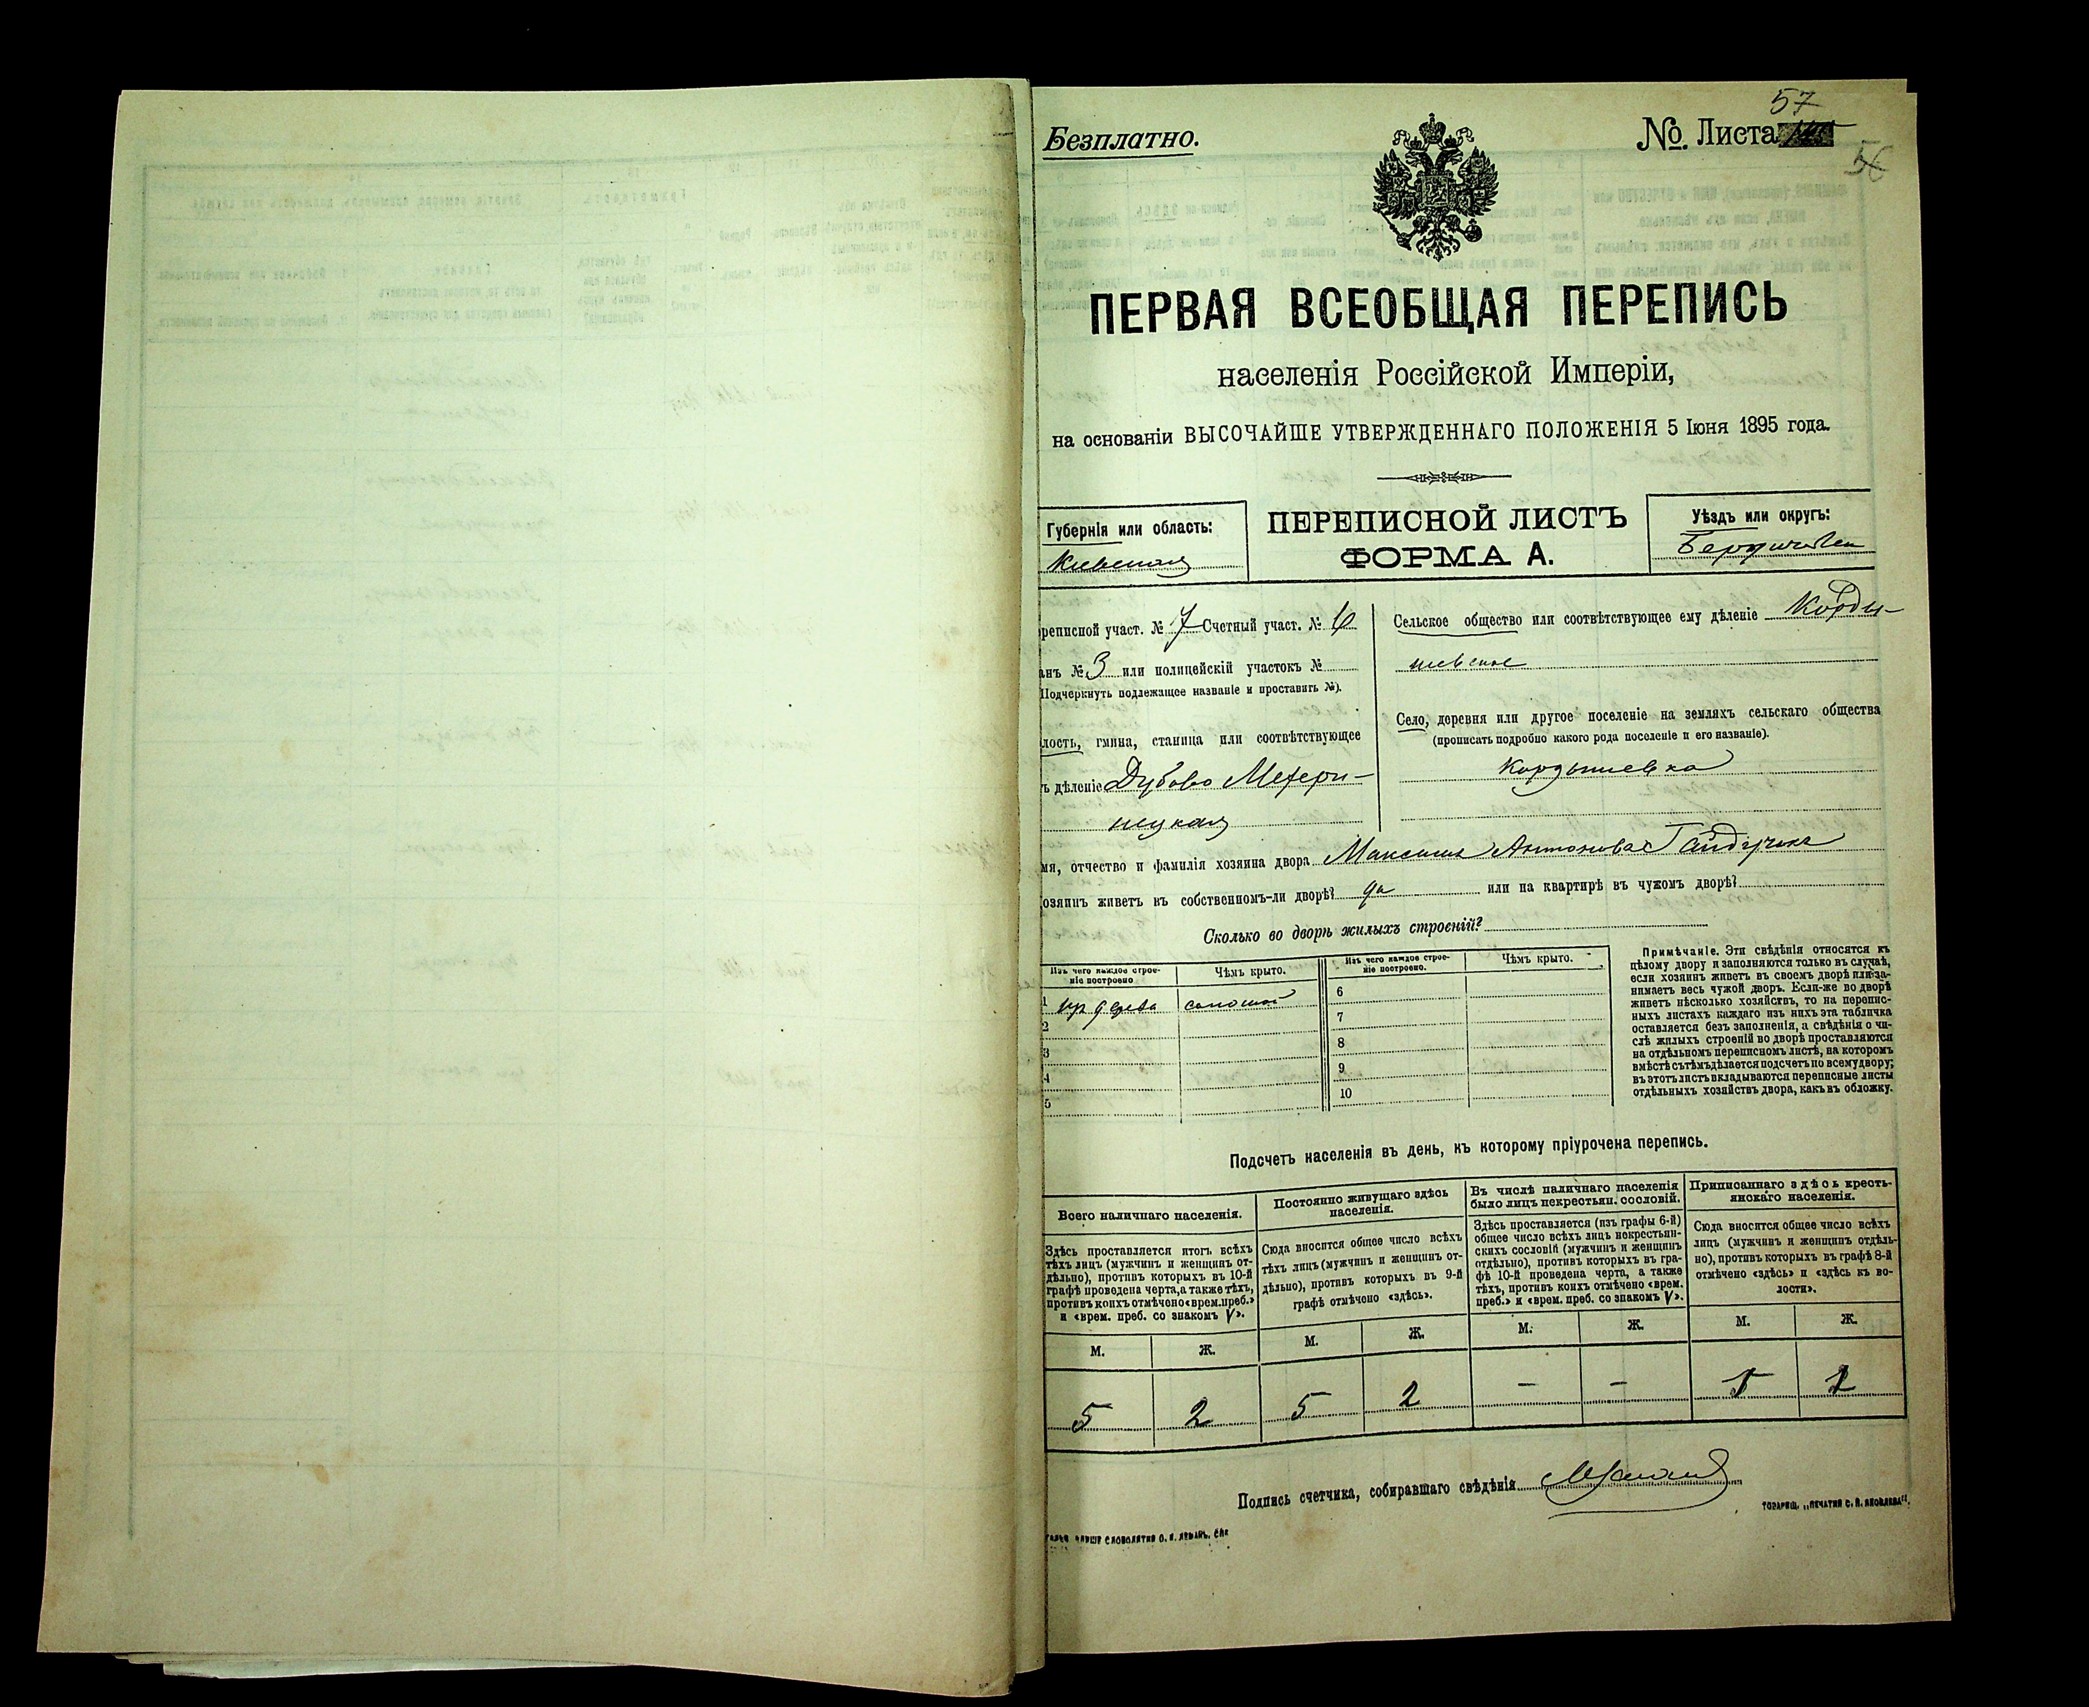 Безплатно.
57
№. Листа
56
ПЕРВАЯ ВСЕОБЩАЯ ПЕРЕПИСЬ
населенія Россійской Имперіи,
на основаніи ВЫСОЧАЙШЕ УТВЕРЖДЕННАГО ПОЛОЖЕНІЯ 5 Іюня 1895 года.
Губернія или область:
Киевская
ПЕРЕПИСНОЙ ЛИСТЪ
ФОРМА А.
Уѣздъ или округъ:
Бердичевск
реписной участ. № 7 Счетный участ. № 6
анъ № 3 или полицейскій участокъ №
Подчеркнуть подлежащее названіе и проставить №).
лость, гмина, станица или соотвѣтствующее
ъ дѣленіе Дубово Махери-
нецкая
Сельское общество или соотвѣтствующее ему дѣленіе Корды-
шевское
Село, деревня или другое поселеніе на земляхъ сельскаго общества
(прописать подробно какого рода поселеніе и его названіе).
Кордышевка
мя, отчество и фамилія хозяина двора Максимъ Антоновъ Гайдучекъ
озяинъ живетъ въ собственномъ-ли дворѣ? да или на квартирѣ въ чужомъ дворѣ?
Сколько во дворѣ жилыхъ строеній?
Изъ чего каждое строе-
ніе построено
Чѣмъ крыто.
Изъ чего каждое строе-
ніе построено.
Чѣмъ крыто.
1 изъ дерева соломой
2
3
4
5
6
7
8
9
10
Примѣчаніе. Эти свѣдѣнія относятся къ
цѣлому двору и заполняются только въ случаѣ,
если хозяинъ живетъ въ своемъ дворѣ или за-
нимаетъ весь чужой дворъ. Если-же во дворѣ
живетъ нѣсколько хозяйствъ, то на перепис-
ныхъ листахъ каждаго изъ нихъ эта табличка
оставляется безъ заполненія, а свѣдѣнія о чи-
слѣ жилыхъ строеній во дворѣ проставляются
на отдѣльномъ переписномъ листѣ, на которомъ
вмѣстѣ съ тѣмъ дѣлается подсчетъ по всему двору;
въ этотъ листъ вкладываются переписные листы
отдѣльныхъ хозяйствъ двора, какъ въ обложку.
Подсчетъ населенія въ день, къ которому пріурочена перепись.
Всего наличнаго населенія.
Постоянно живущаго здѣсь
населенія.
Въ числѣ наличнаго населенія
было лицъ некрестьян. сословій.
Приписаннаго здѣсь кресть-
янскаго населенія.
Здѣсь проставляется итогъ всѣхъ
тѣхъ лицъ (мужчинъ и женщинъ от-
дѣльно), противъ которыхъ въ 10-й
графѣ проведена черта, а также тѣхъ,
противъ коихъ отмѣчено «врем. преб.»
и «врем. преб. со знакомъ V».
Сюда вносится общее число всѣхъ
тѣхъ лицъ (мужчинъ и женщинъ от-
дѣльно), противъ которыхъ въ 9-й
графѣ отмѣчено «здѣсь».
Здѣсь проставляется (изъ графы 6-й)
общее число всѣхъ лицъ некрестьян-
скихъ сословій (мужчинъ и женщинъ
отдѣльно), противъ которыхъ въ гра-
фѣ 10-й проведена черта, а также
тѣхъ, противъ коихъ отмѣчено «врем.
преб.» и «врем. преб. со знакомъ V».
Сюда вносится общее число всѣхъ
лицъ (мужчинъ и женщинъ отдѣль-
но), противъ которыхъ въ графѣ 8-й
отмѣчено «здѣсь» и «здѣсь къ во-
лости».
М. Ж. М. Ж. М. Ж. М. Ж.
5 2 5 2 – – 5 2
Подпись счетчика, собиравшаго свѣдѣнія
ТОВАРИЩ. „ПЕЧАТНЯ С. П. ЯКОВЛЕВА“.